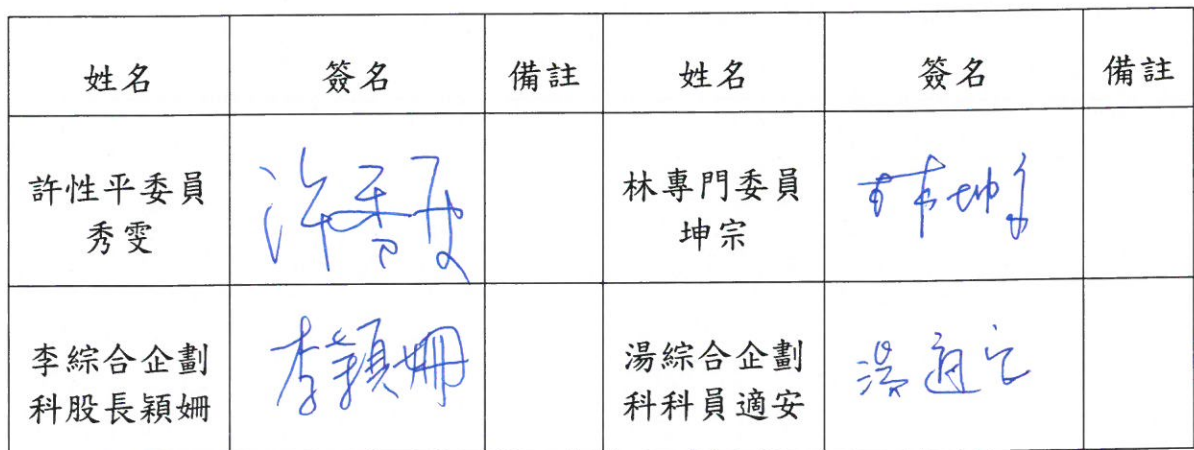 姓名 簽名 備註 姓名 簽名 備註
許性平委員
秀雯
許秀雯
林專門委員
坤宗
林坤宗
李綜合企劃
科股長穎姍
李穎姍
湯綜合企劃
科科員適安
湯適安